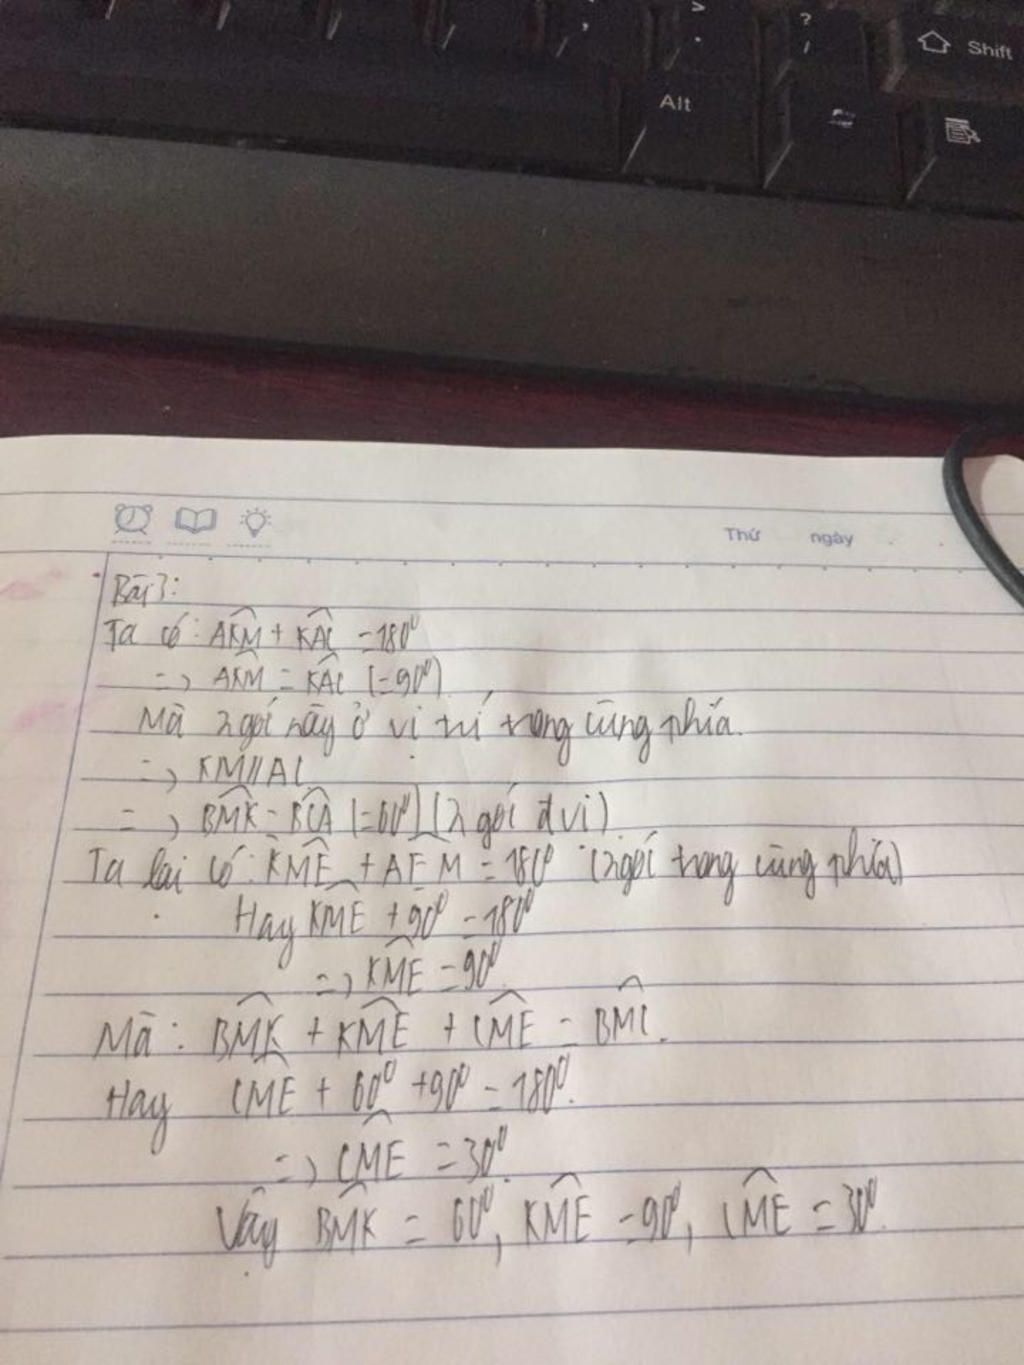 > ?
, . /
Shift
Alt
Thứ ngày
Bài 3:
Ta có: AKM + KAC = 180⁰
=> AKM = KAC (= 90⁰)
Mà 2 gói này ở vị trí trong cùng phía.
=> KM // AC
=> BMK = BCA (= 60⁰) (2 gói đ vị).
Ta lại có: KME + AEM = 180⁰ (2 gói trong cùng phía)
Hay KME + 90⁰ = 180⁰
=> KME = 90⁰
Mà: BMK + KME + CME = BMC.
Hay CME + 60⁰ + 90⁰ = 180⁰.
=> CME = 30⁰.
Vậy BMK = 60⁰, KME = 90⁰, CME = 30⁰.